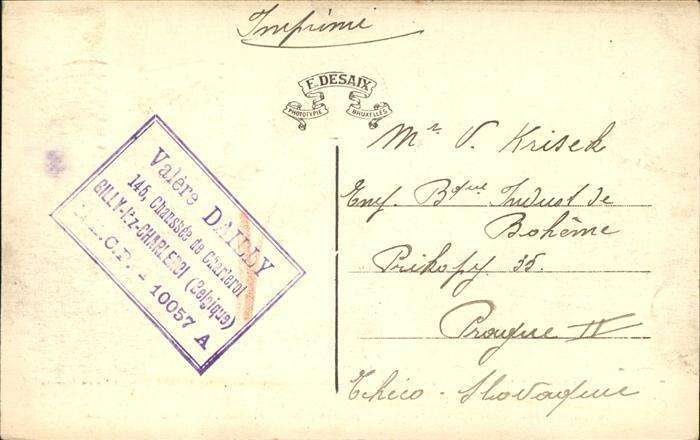 Imprimé
E. DESAIX
PHOTOTYPIE BRUXELLES
Valère DAILLY
145, Chaussée de Charleroi
GILLY-lez-CHARLEROI (Belgique)
C.P. - 10057 A
Mr V. Krisek
Emp. Bque Indust de
Bohême
Prikopy 35.
Prague IV
Tchéco-Slovaquie